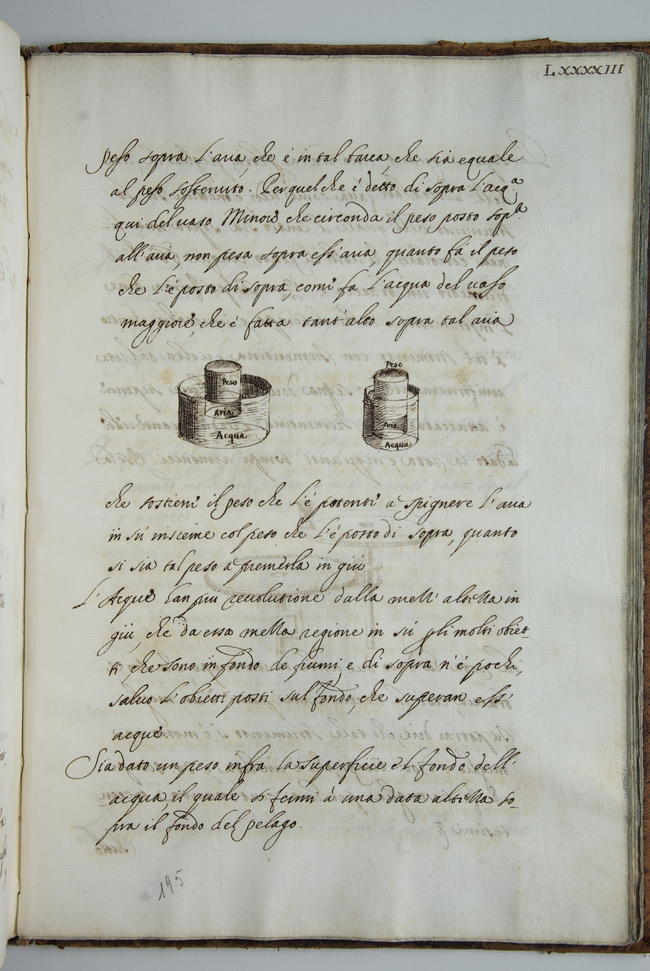 LXXXXIII
peso sopra l'aria, che è in tal tacca, che sia equale
al peso sostenuto. Per quel che è detto di sopra l'acqa
qui del uaso Minore, che circonda il peso posto sopra
all'aria, non pesa sopra ess'aria, quanto fà il peso
che l'è posto di sopra, come fa l'acqua del uaso
maggiore, che è fatta tant'alto sopra tal aria
Peso
Aria
Acqua
Peso
Aria
Acqua
che sostiene il peso che l'è potente a spignere l'aria
in sù insieme col peso che l'è posto di sopra, quanto
si sia tal peso a premerla in giù
L'Acque han più reuolutione dalla mezz'altezza in
giù, che da essa mezza regione in sù gli molti obiet-
ti, che sono in fondo de fiumi, e di sopra n'è pochi,
saluo l'obietti posti sul fondo, che superan esse
acque
Sia dato un peso infra la superficie e'l fondo dell'
acqua il quale si fermi à una data altezza so-
pra il fondo del pelago.
195